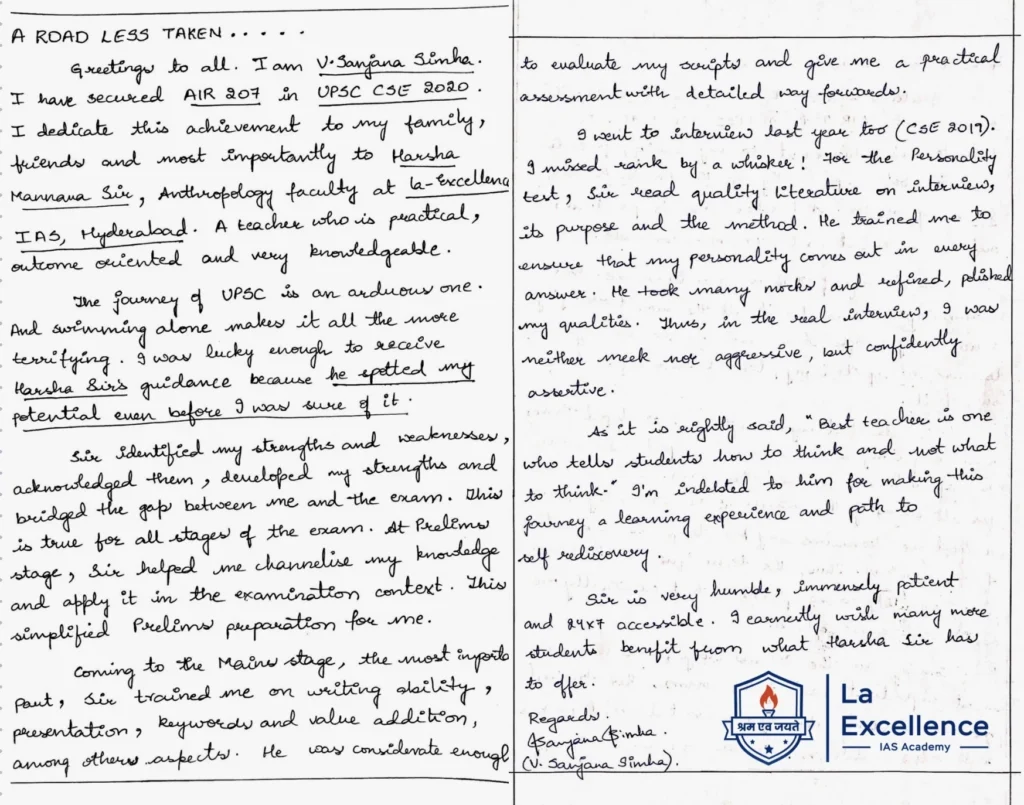 A ROAD LESS TAKEN.....
Greetings to all. I am V. Sanjana Simha.
I have secured AIR 207 in UPSC CSE 2020.
I dedicate this achievement to my family,
friends and most importantly to Harsha
Mannava Sir, Anthropology faculty at la-Excellenc
IAS, Hyderabad. A teacher who is practical,
outcome oriented and very knowledgeable.
The journey of UPSC is an arduous one.
And swimming alone makes it all the more
terrifying. I was lucky enough to receive
Harsha Sir's guidance because he spotted my
potential even before I was sure of it.
Sir identified my strengths and weaknesses,
acknowledged them, developed my strengths and
bridged the gap between me and the exam. This
is true for all stages of the exam. At Prelims
stage, Sir helped me channelise my knowledge
and apply it in the examination context. This
simplified Prelims preparation for me.
Coming to the Mains stage, the most importa
part, Sir trained me on writing ability,
presentation, keywords and value addition,
among others aspects. He was considerate enough
to evaluate my scripts and give me a practical
assessment with detailed way forwards.
I went to interview last year too (CSE 2019).
I missed rank by a whisker! For the Personality
test, Sir read quality literature on interview,
its purpose and the method. He trained me to
ensure that my personality comes out in every
answer. He took many mocks and refined, polished
my qualities. Thus, in the real interview, I was
neither meek nor aggressive, but confidently
assertive.
As it is rightly said, "Best teacher is one
who tells students how to think and not what
to think." I'm indebted to him for making this
journey a learning experience and path to
self rediscovery.
Sir is very humble, immensely patient
and 24x7 accessible. I earnestly wish many more
students benefit from what Harsha Sir has
to offer.
Regards.
Sanjana Simha.
(V. Sanjana Simha).
श्रम एव जयते
La
Excellence
IAS Academy